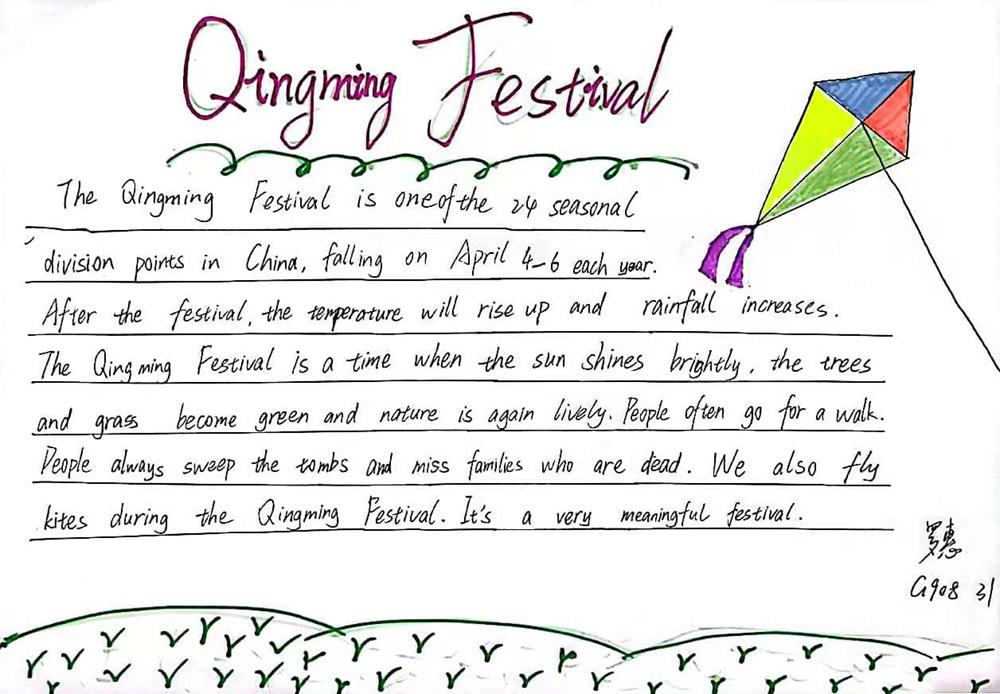 Qingming Festival
The Qingming Festival is one of the 24 seasonal
division points in China, falling on April 4-6 each year.
After the festival, the temperature will rise up and rainfall increases.
The Qingming Festival is a time when the sun shines brightly, the trees
and grass become green and nature is again lively. People often go for a walk.
People always sweep the tombs and miss families who are dead. We also fly
kites during the Qingming Festival. It's a very meaningful festival.
罗惠
G908 31